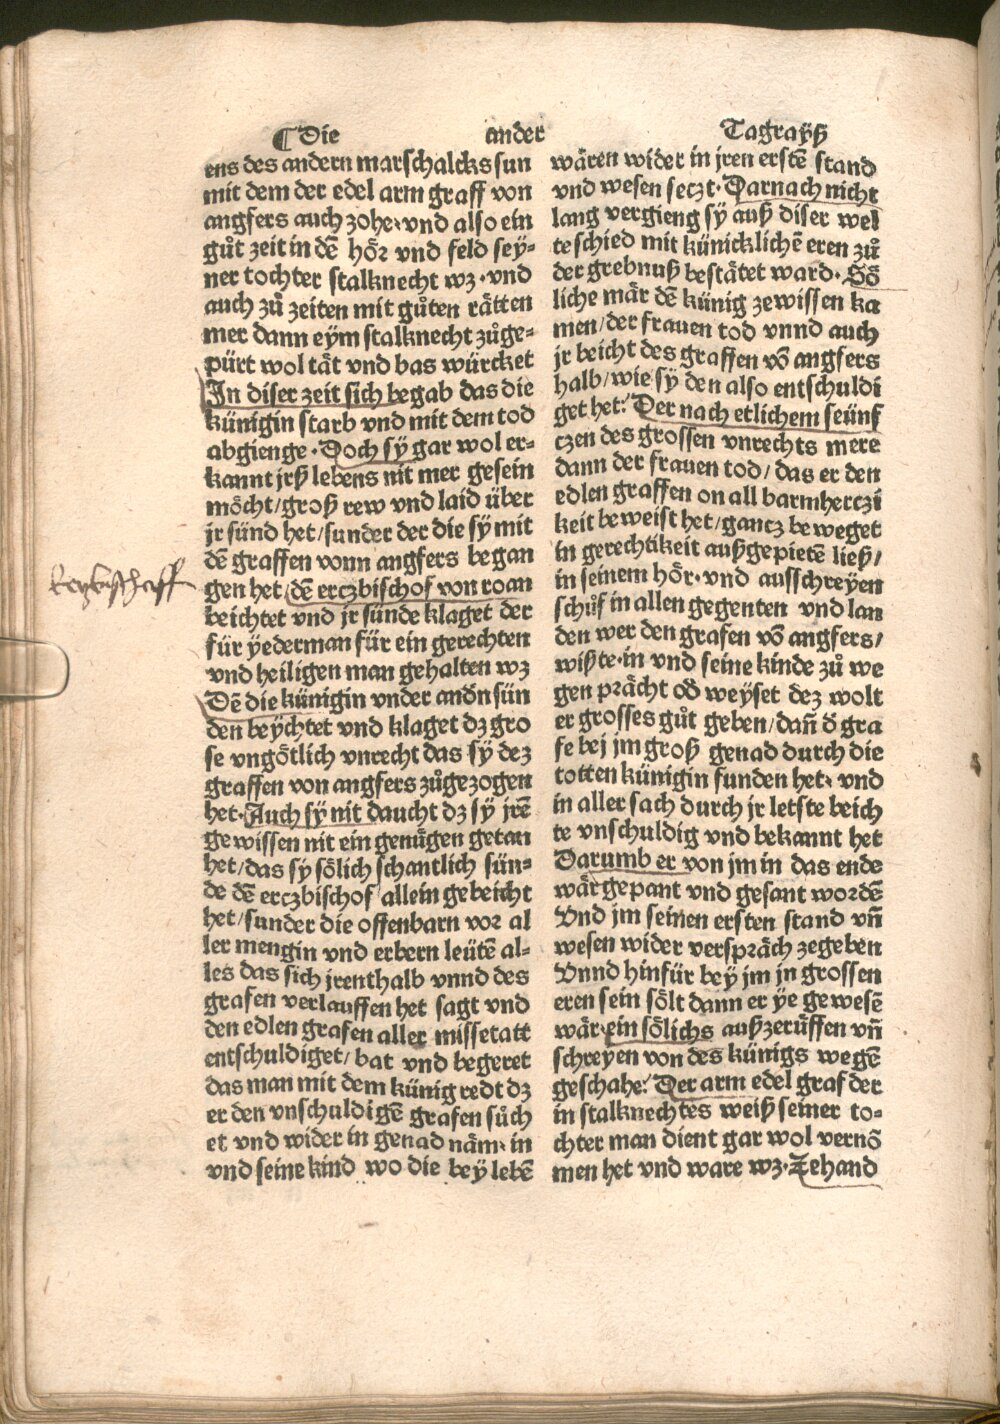 ¶ Die ander Tagraÿß
ens des andern marschalcks sun
mit dem der edel arm graff von
angfers auch zohe·vnd also ein
gůt zeit in dē hör vnd feld sey-
ner tochter stalknecht wz·vnd
auch zů zeiten mit gůten rätten
mer dann eym stalknecht zůge-
pürt wol tät vnd bas würcket
In diser zeit sich begab das die
künigin starb vnd mit dem tod
abgienge·Doch sÿ gar wol er-
kannt jrß lebens nit mer gesein
möcht/groß rew vnd laid über
jr sünd het/sunder der die sÿ mit
dē graffen vonn angfers began
gen het/dē erczbischof von roan
beichtet vnd jr sünde klaget der
für ÿederman für ein gerechten
vnd heiligen man gehalten wz
Dē die künigin vnder andn̄ sün
den beÿchtet vnd klaget dz gro
se vngötlich vnrecht das sÿ dez
graffen von angfers zůgezogen
het·Auch sÿ nit daucht dz sÿ jrē
gewissen nit ein genůgen getan
het/das sÿ sölich schantlich sün-
de dē erczbischof allein gebeicht
het/sunder die offenbarn vor al
ler mengin vnd erbern leütē al-
les das sich jrenthalb vnnd des
grafen verlauffen het sagt vnd
den edlen grafen aller missetatt
entschuldiget/bat vnd begeret
das man mit dem künig redt dz
er den vnschuldigē grafen sůch
et vnd wider in genad näm·in
vnd seine kind wo die beÿ lebē
wären wider in jren erstē stand
vnd wesen seczt·Darnach nicht
lang vergieng sÿ auß diser wel
te schied mit künicklichē eren zů
der grebnuß bestätet ward·Sö
liche mär dē künig zewissen ka
men/der frauen tod vnnd auch
jr beicht des graffen vō angfers
halb/wie sÿ den also entschuldi
get het·Der nach etlichem seünf
czen des grossen vnrechts mere
dann der frauen tod/das er den
edlen graffen on all barmherczi
keit beweist het/gancz beweget
in gerechtikeit außgepietē ließ/
in seinem hör·vnd ausschreyen
schůf in allen gegenten vnd lan
den wer den grafen vō angfers/
wißte·in vnd seine kinde zů we
gen prächt od̄ weyset dez wolt
er grosses gůt geben/dan̄ d̄ gra
fe bej jm groß genad durch die
totten künigin funden het·vnd
in aller sach durch jr letste beich
te vnschuldig vnd bekannt het
Darumb er von jm in das ende
wär gepant vnd gesant wordē
Vnd jm seinen ersten stand vn̄
wesen wider verspräch zegeben
Vnnd hinfür beÿ jm jn grossen
eren sein sölt dann er ÿe gewesē
wär·ein sölichs außzerüffen vn̄
schreyen von des künigs wegē
geschahe·Der arm edel graf der
in stalknechtes weiß seiner to-
chter man dient gar wol vernō
men het vnd ware wz·Zehand